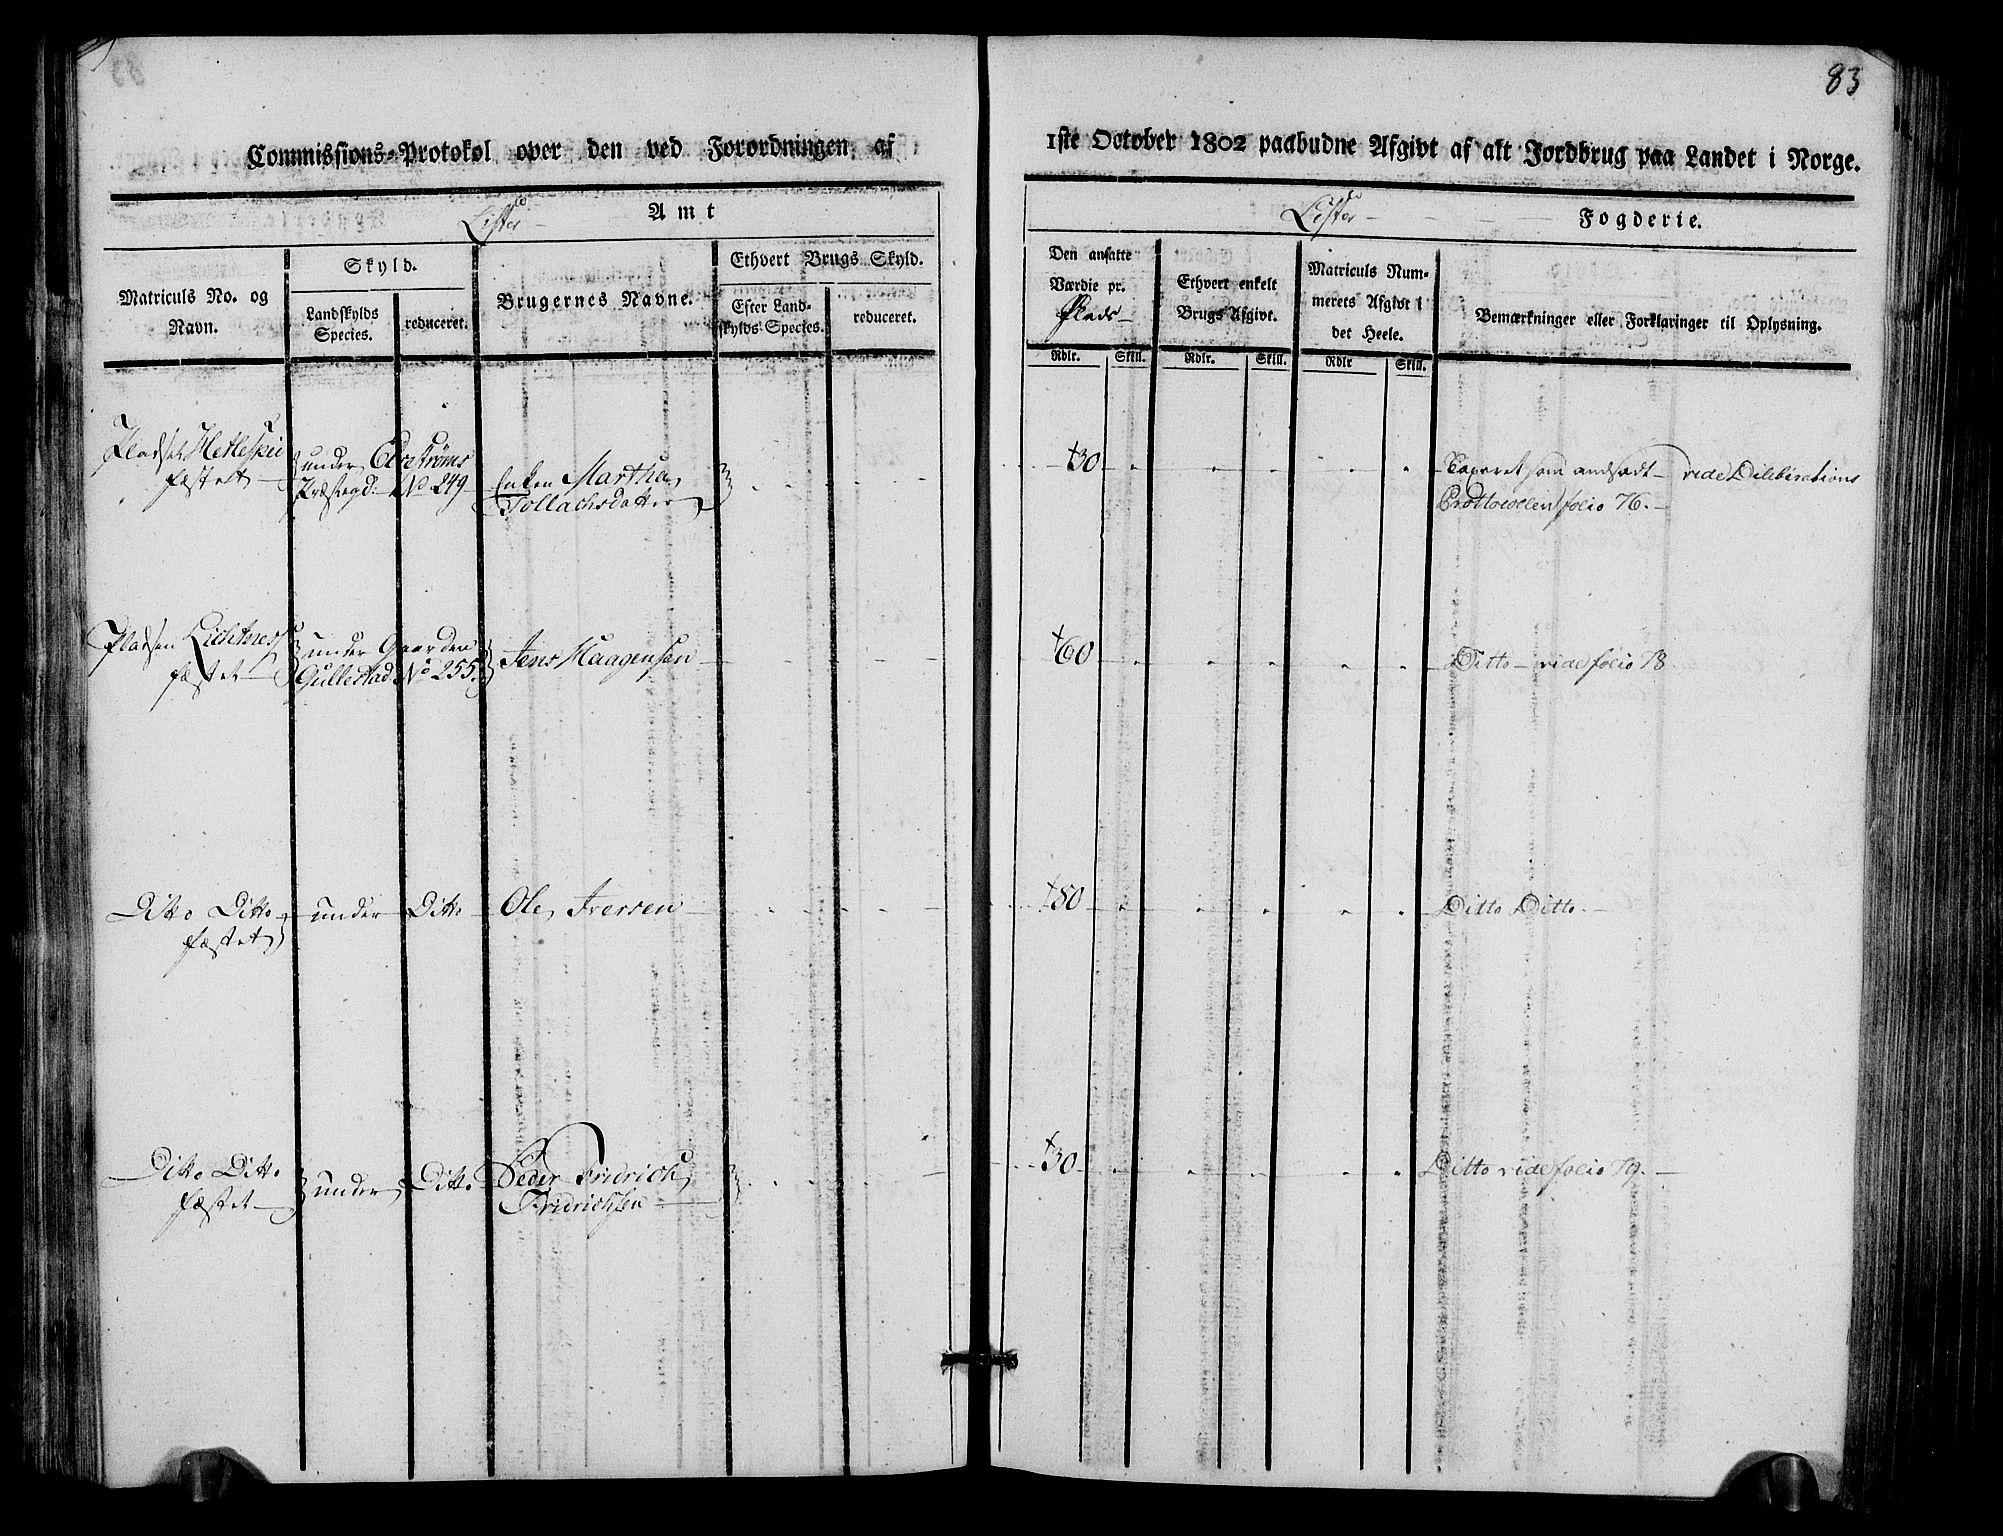 83
Commissions=Protokol over den ved Forordningen af 1ste October 1802 paabudne Afgivt af alt Jordbrug paa Landet i Norge.
Lister Amt
Lister Fogderie.
Matriculs No. og
Navn.
Skyld.
Landskylds
Species.
reduceret.
Brugernes Navne.
Ethvert Brugs Skyld.
Efter Land-
skylds Species.
reduceret.
Den ansatte
Værdie pr.
Plads
Ethvert enkelt
Brugs Afgivt.
Matriculs Num-
merets Afgivt i
det Heele.
Bemærkninger eller Forklaringer til Oplysning.
Rdlr. Skill. Rdlr. Skill. Rdlr Skill.
Pladset Hetleskei under Præstegd. No 249 Enken Martha 30 som andsadt vide Deliberations
fæstet Tollachsdatter Prottocollen folio 76.
Pladsen under Gaarden Jens Haagensen 60 Ditto vide folio 78
fæstet Gullestad No 255.
Ditto Ditto under Ditto Ole Iversen 80 Ditto Ditto.
fæstet
Ditto Ditto under Ditto Peder Fridrich 30 Ditto vide folio 79.
fæstet Fridrichsen